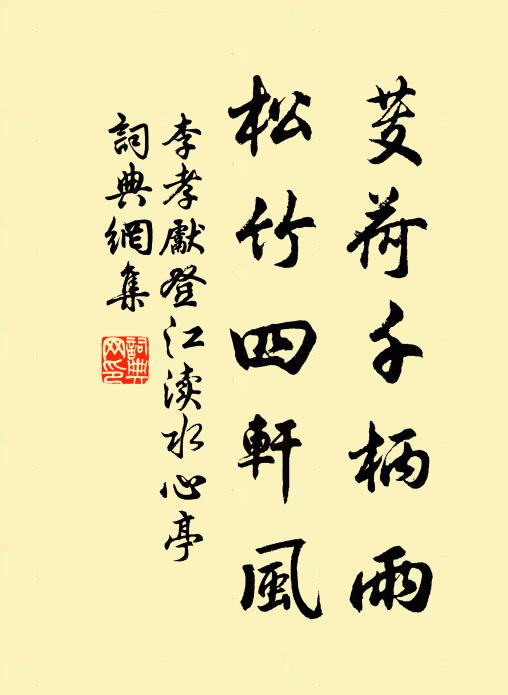 芰荷千柄雨
松竹四軒風
李孝獻登江渎水心亭
詞典網集
詞典
网印